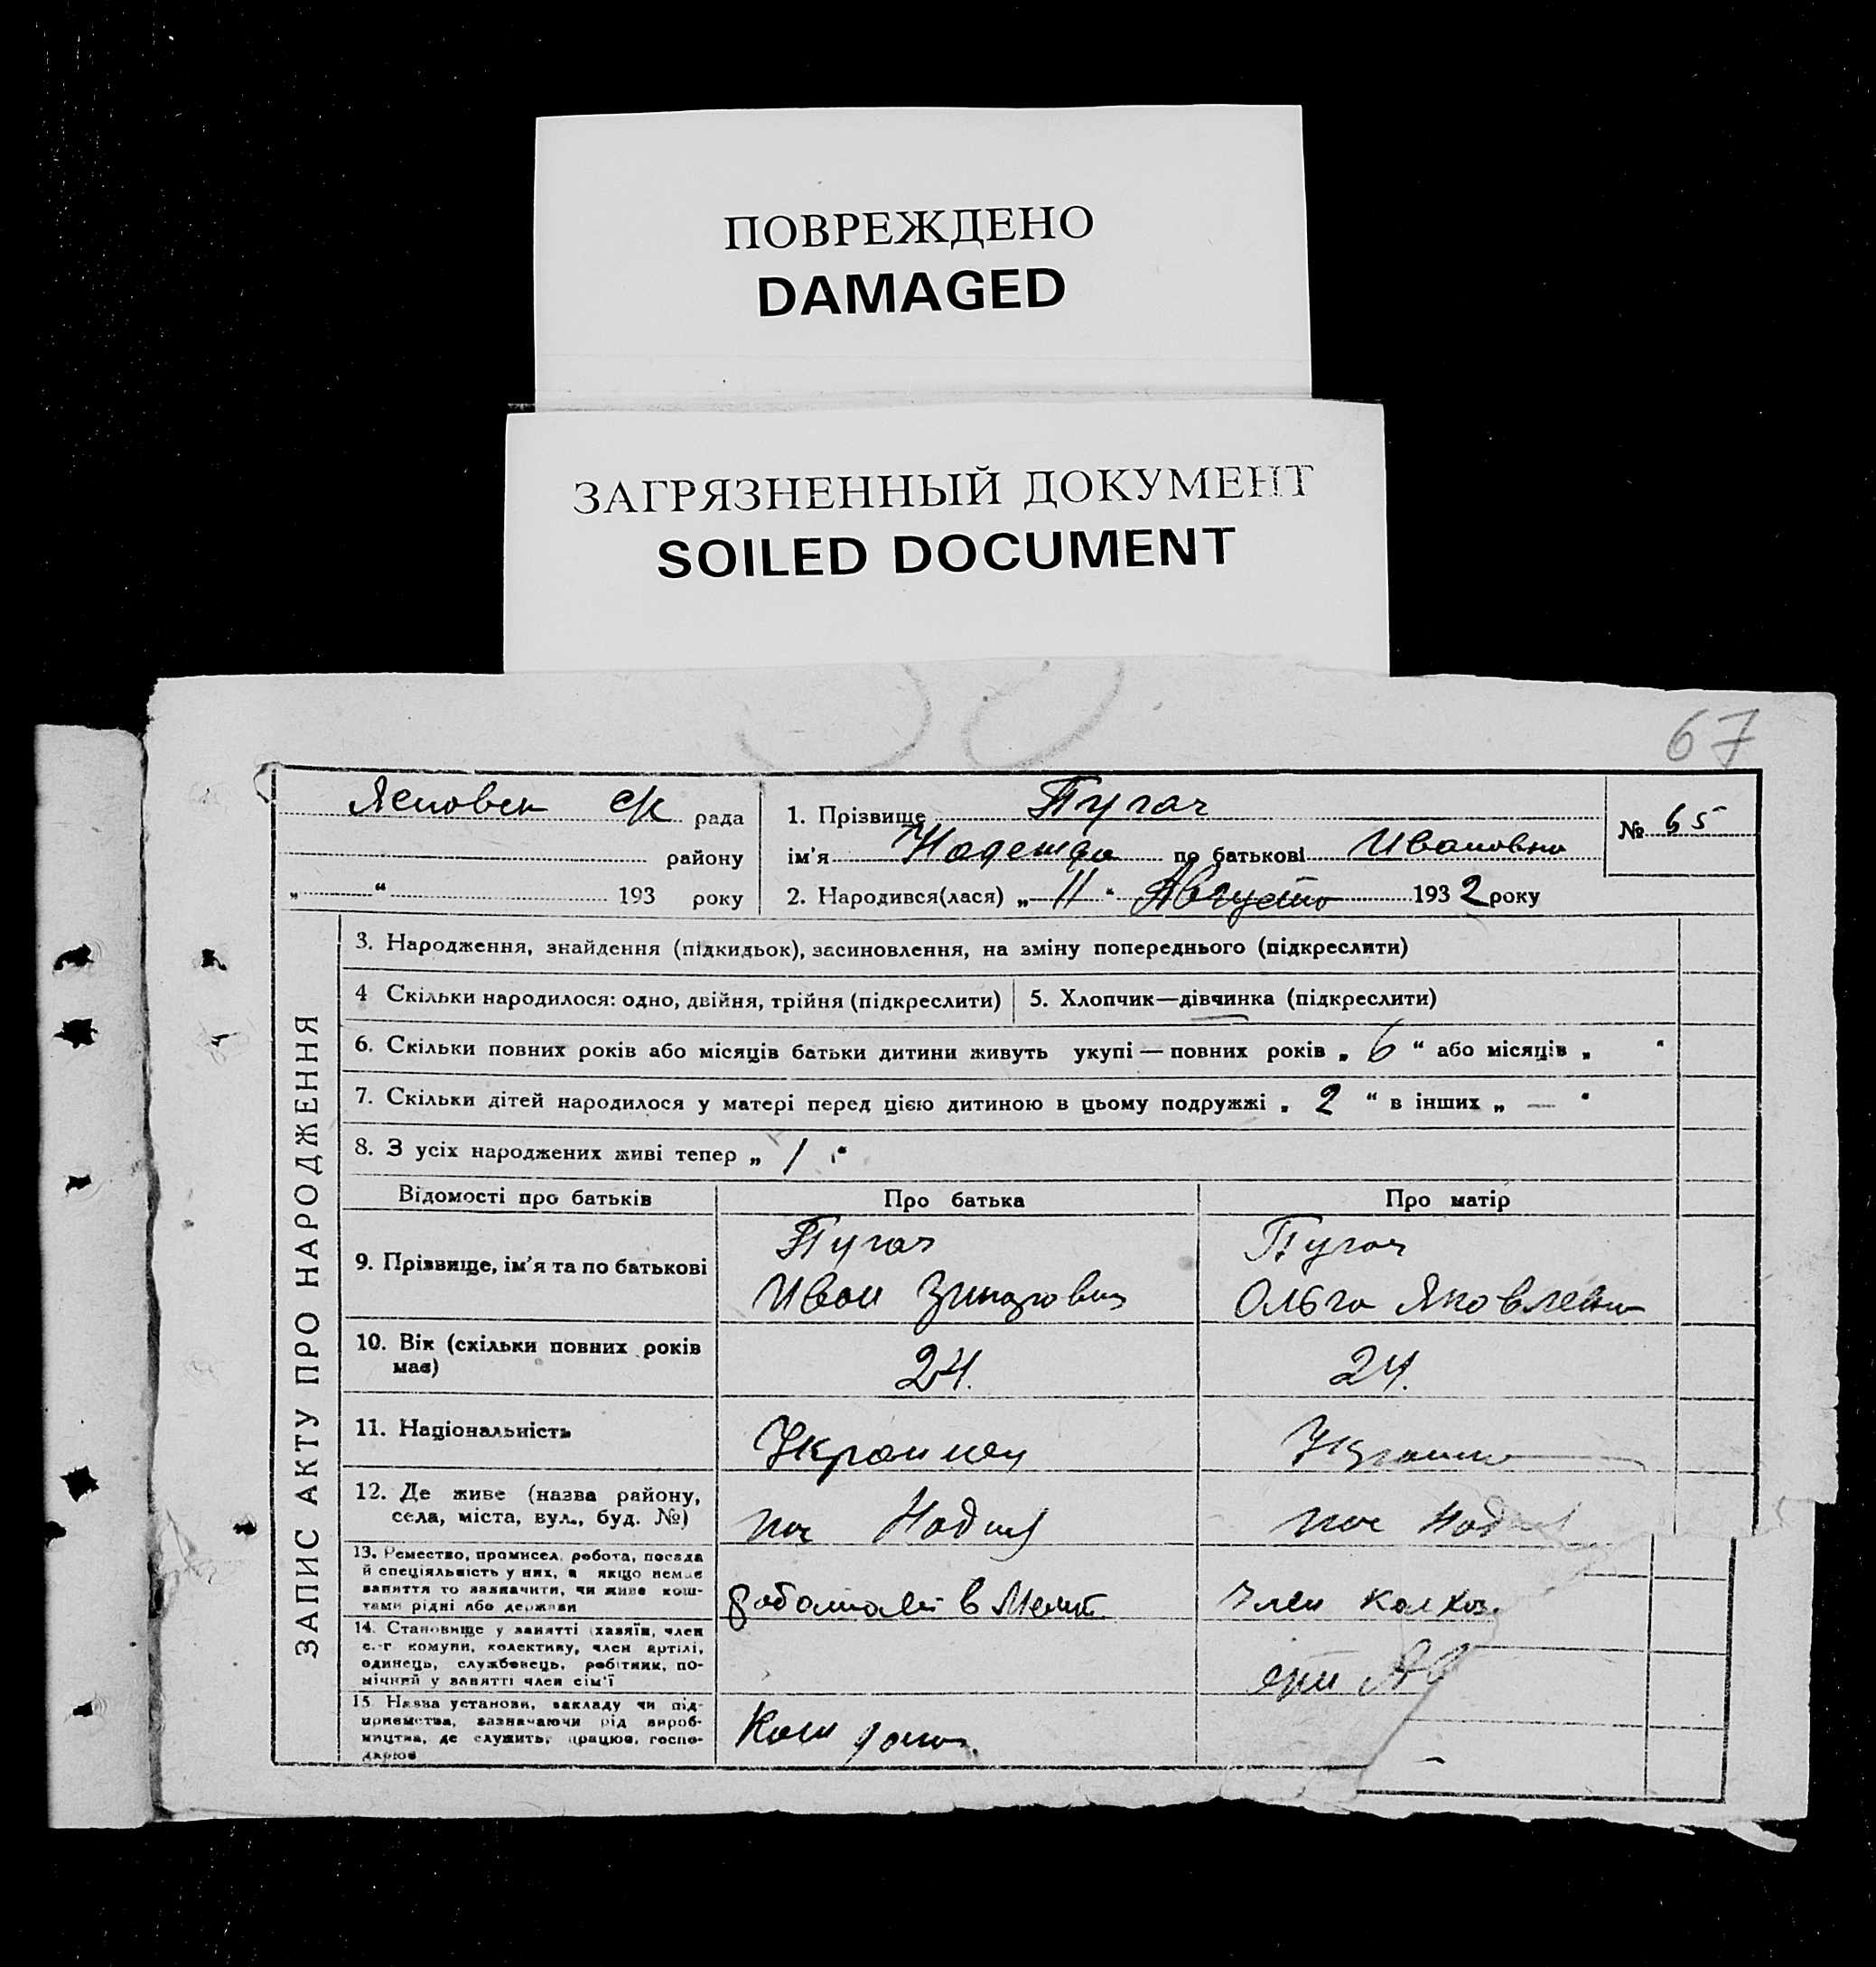 ПОВРЕЖДЕНО
DAMAGED
ЗАГРЯЗНЕННЫЙ ДОКУМЕНТ
SOILED DOCUMENT
67
ЗАПИС АКТУ ПРО НАРОДЖЕННЯ
с/к рада
району
„ “ 193 року
1. Прізвище Пугач
ім'я Надежда по батькові Ивановна
2. Народився(лася) „ 11 “ Августа 1932 року
№ 65
3. Народження, знайдення (підкидьок), засиновлення, на зміну попереднього (підкреслити)
4 Скільки народилося: одно, двійня, трійня (підкреслити)
5. Хлопчик—дівчинка (підкреслити)
6. Скільки повних років або місяців батьки дитини живуть укупі — повних років „ 6 “ або місяців „ “
7. Скільки дітей народилося у матері перед цією дитиною в цьому подружжі „ 2 “ в інших „ — “
8. З усіх народжених живі тепер „ 1 “
Відомості про батьків Про батька Про матір
9. Прізвище, ім'я та по батькові
Пугач
Иван
Пугач
Ольга Яковлевна
10. Вік (скільки повних років
має)
24.
24.
11. Національність
Украинец
12. Де живе (назва району,
села, міста, вул., буд. №)
пос
пос
13. Ремество, промисел, робота, посада
й спеціяльність у них, а якщо немає
заняття то зазначити, чи живе кош-
тами рідні або держави
работает в
Член колхоз.
14. Становище у занятті (хазяїн, член
с.-г. комуни, колективу, член артілі,
одинець, службовець, робітник, по-
мічний у занятті член сім'ї
15. Назва установи, закладу чи під-
приємства, зазначаючи рід вироб-
ництва, де служить, працює, госпо-
дарює